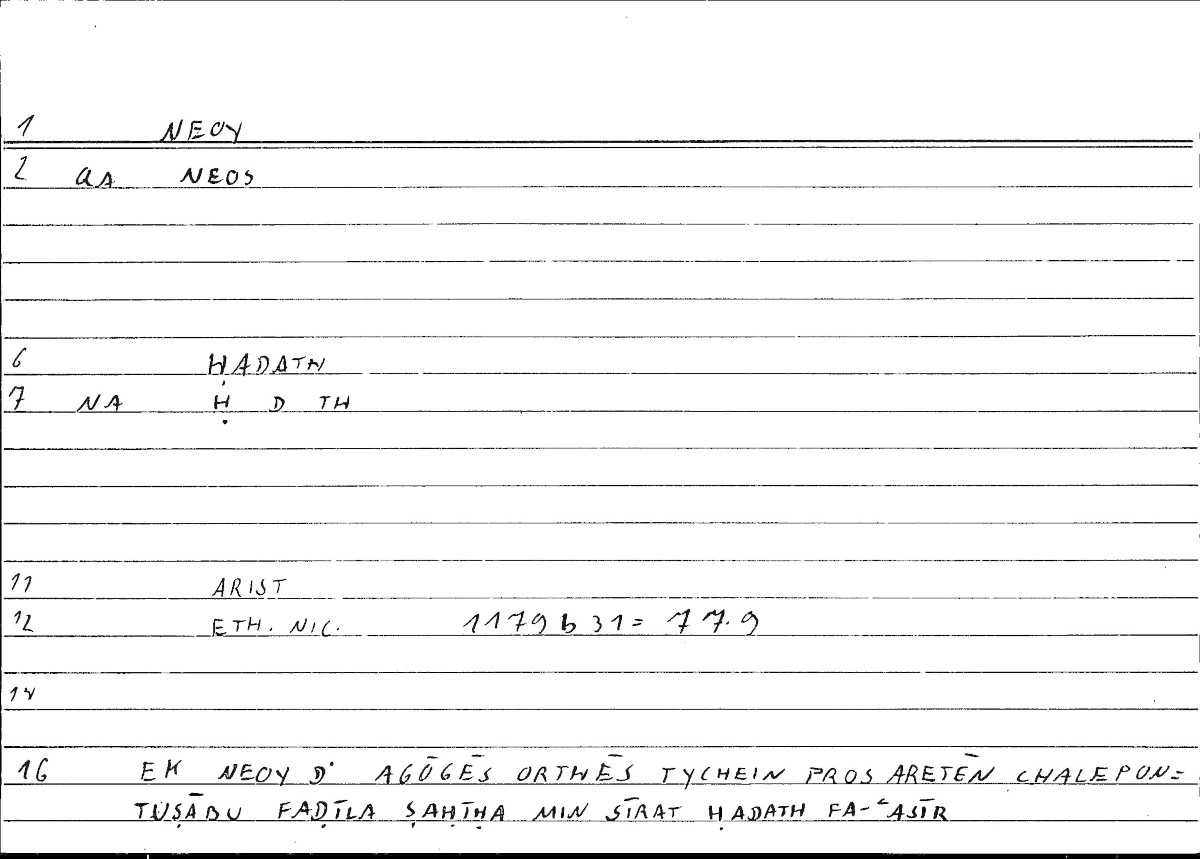 1 NEOY
2 aA NEOS
6 ḤADATH
7 NA Ḥ D TH
11 ARIST
12 ETH. NIC. 1179 b 31 = 77.9
14
16 EK NEOY D' AGŌGĒS ORTHĒS TYCHEIN PROS ARETĒN CHALEPON=
TUṢĀBU FAḌĪLA ṢAḤĪḤA MIN SĪRAT ḤADATH FA-ʿASĪR